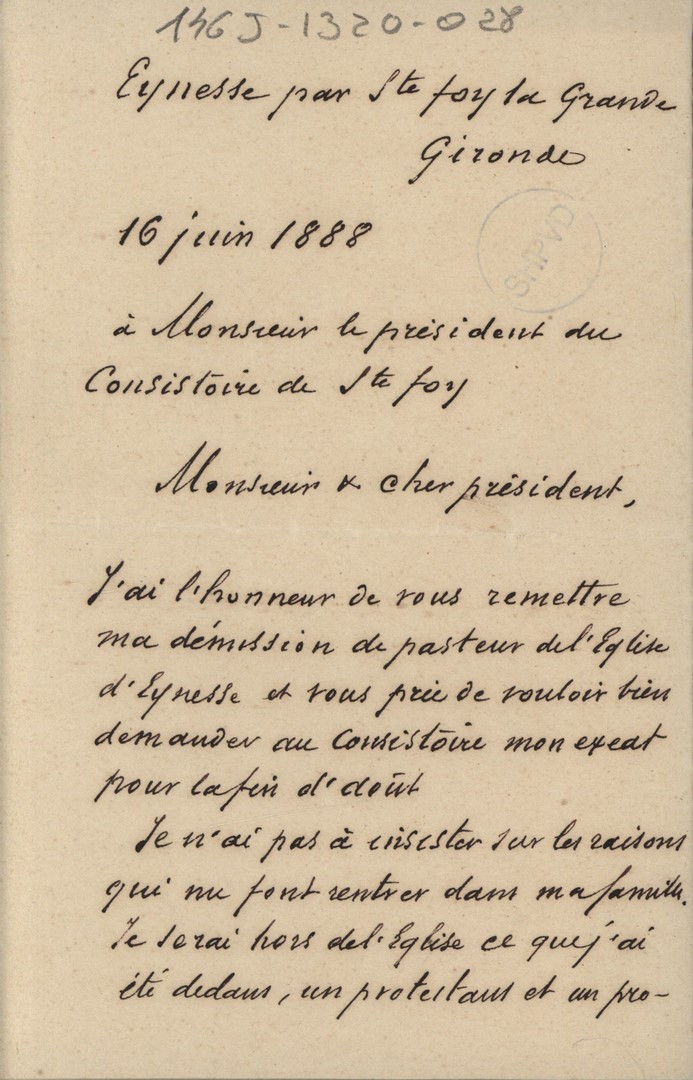 146J-1320-028
Eynesse par Ste foy la Grande
Gironde
16 juin 1888
SHPVD
à Monsieur le président du
Consistoire de Ste foy
Monsieur & cher président,
J'ai l'honneur de vous remettre
ma démission de pasteur de l'Eglise
d'Eynesse et vous prie de vouloir bien
demander au Consistoire mon exeat
pour la fin d'août
Je n'ai pas à insister sur les raisons
qui me font rentrer dans ma famille.
Je serai hors de l'Eglise ce que j'ai
été dedans, un protestant et un pro-